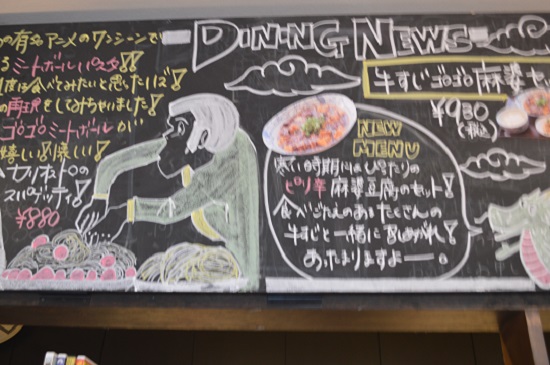 の有名アニメのワンシーンで
るミートボールパスタ!!
1度は食べてみたいと思ったハズ!
の再現をしてみちゃいました!
ゴロゴロミートボールが
嬉しい&懐しい!
セリ
スパゲッティ!
¥880
DINING NEWS
牛すじゴロゴロ麻婆セ
¥930
(税込)
NEW
MENU
寒い時期にはぴったりの
ピリ辛 麻婆豆腐のセット!
食べごたえのあるたくさんの
牛すじと一緒に召しあがれ!
あったまりますよー。